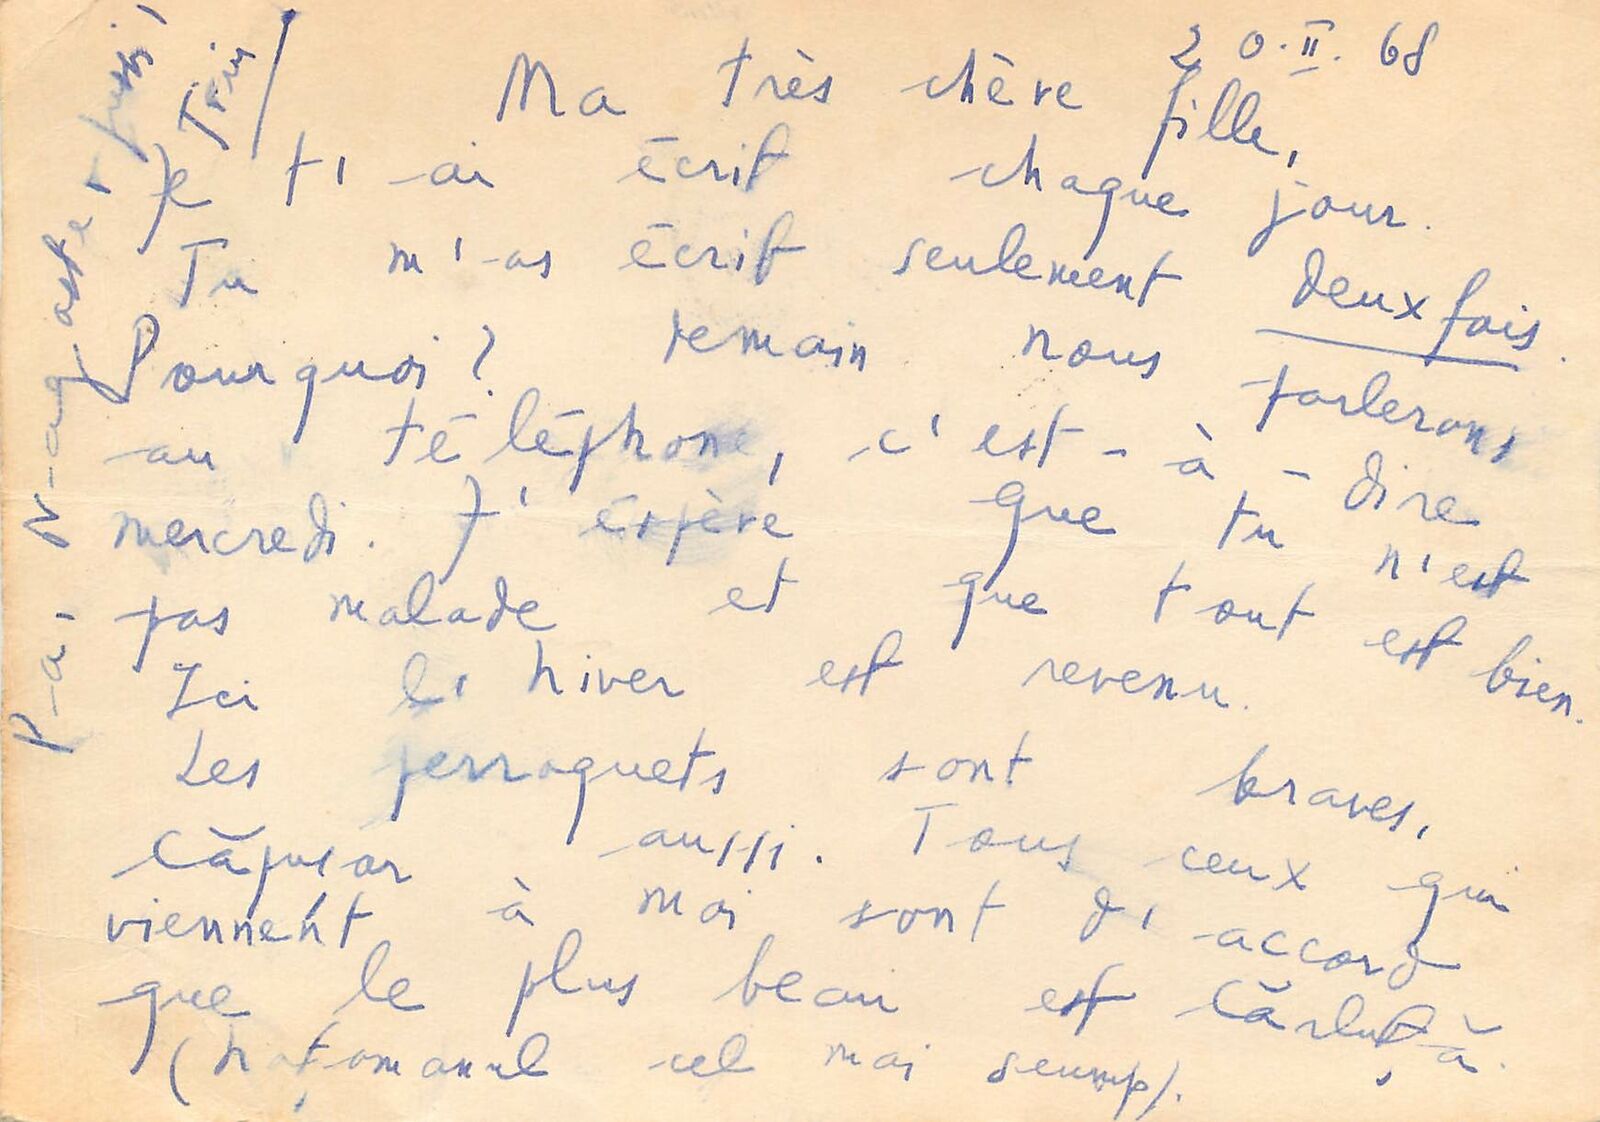 20.II.68
Ma très chère fille,
Je t'ai écrit chaque jour.
Tu m'as écrit seulement deux fois.
Pourquoi? Demain nous parlerons
au téléphone, c'est-à-dire
mercredi. J'éspère que tu n'est
pas malade et que tout est bien.
Ici l'hiver est revenu.
Les perroquets sont braves,
Căpușor aussi. Tous ceux qui
viennent à moi sont d'accord
que le plus beau est Cărluță.
(hoțomanul cel mai scump).
P-a-N-ag aste